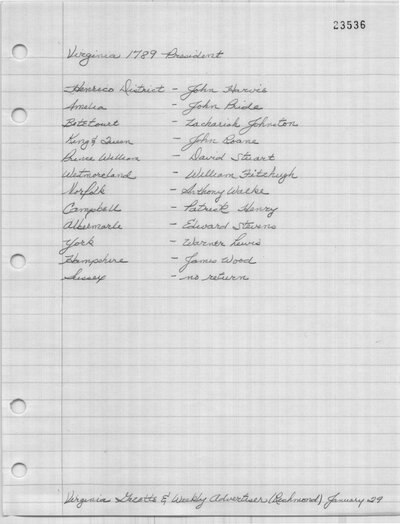 23536
Virginia 1789 President
Henrico District - John Harvie
Amelia - John Pride
Botetourt - Zachariah Johnston
King & Queen - John Roane
Prince William - David Stuart
Westmoreland - William Fitzhugh
Norfolk - Anthony Walke
Campbell - Patrick Henry
Albemarle - Edward Stevens
York - Warner Lewis
Hampshire - James Wood
Sussex - no return
Virginia Gazette & Weekly Advertiser (Richmond) January 29